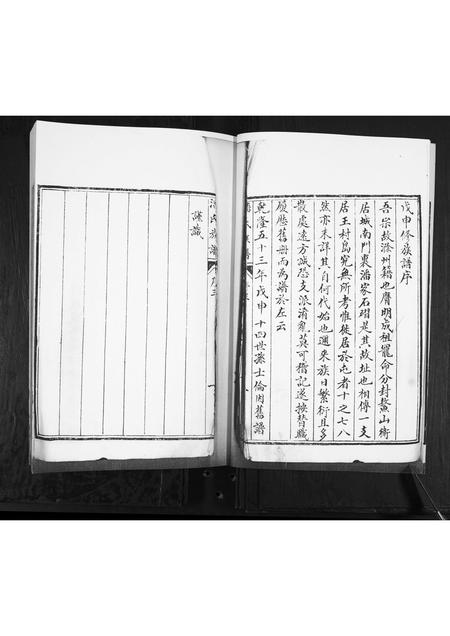 戊申修族譜序
吾宗故滁州籍也膺明成祖寵命分封鰲山衛
居城南門裏潘家石硼是其故址也相傳一支
居王村島究無所考惟徙居於屯者十之七八
然亦未詳其自何代始也邇來族日繁衍且多
散處遠方誠恐支派淆亂莫可稽記遂挨替職
履歷舊冊而為譜於左云
乾隆五十三年戊申 十四世孫士倫因舊譜
謹識
氏族譜